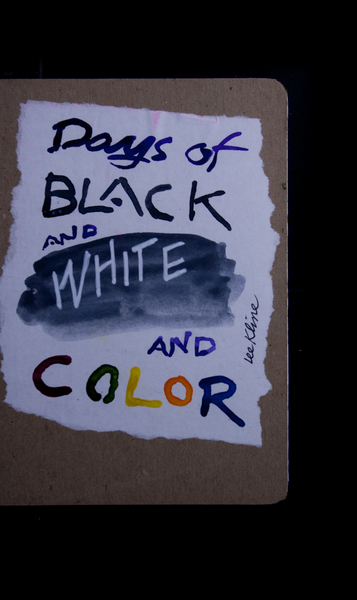 Days of
BLACK
AND
WHITE
AND
COLOR
Lee Kline